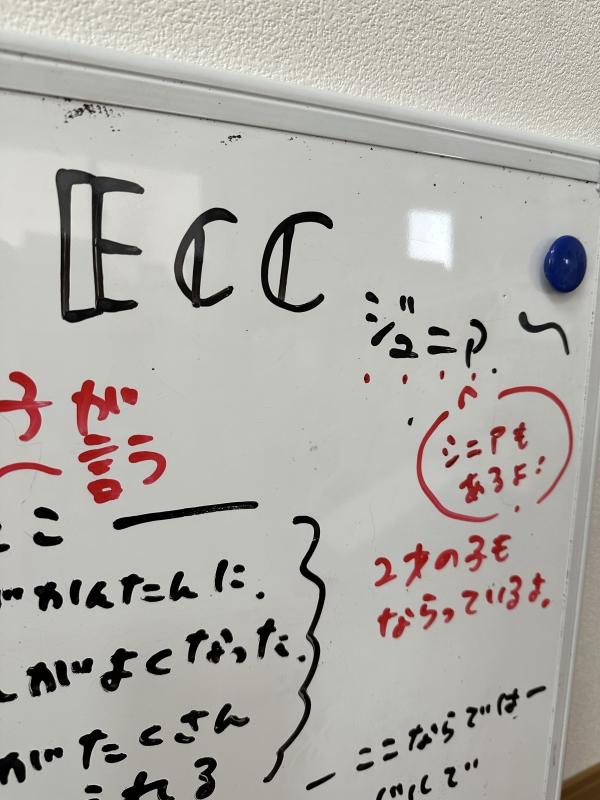 ECC
ジュニア
シニアも
あるよ!
子が
言う
2才の子も
ならっているよ。
こ
がかんたんに。
がよくなった。
がたくさん
れる
ここならでは